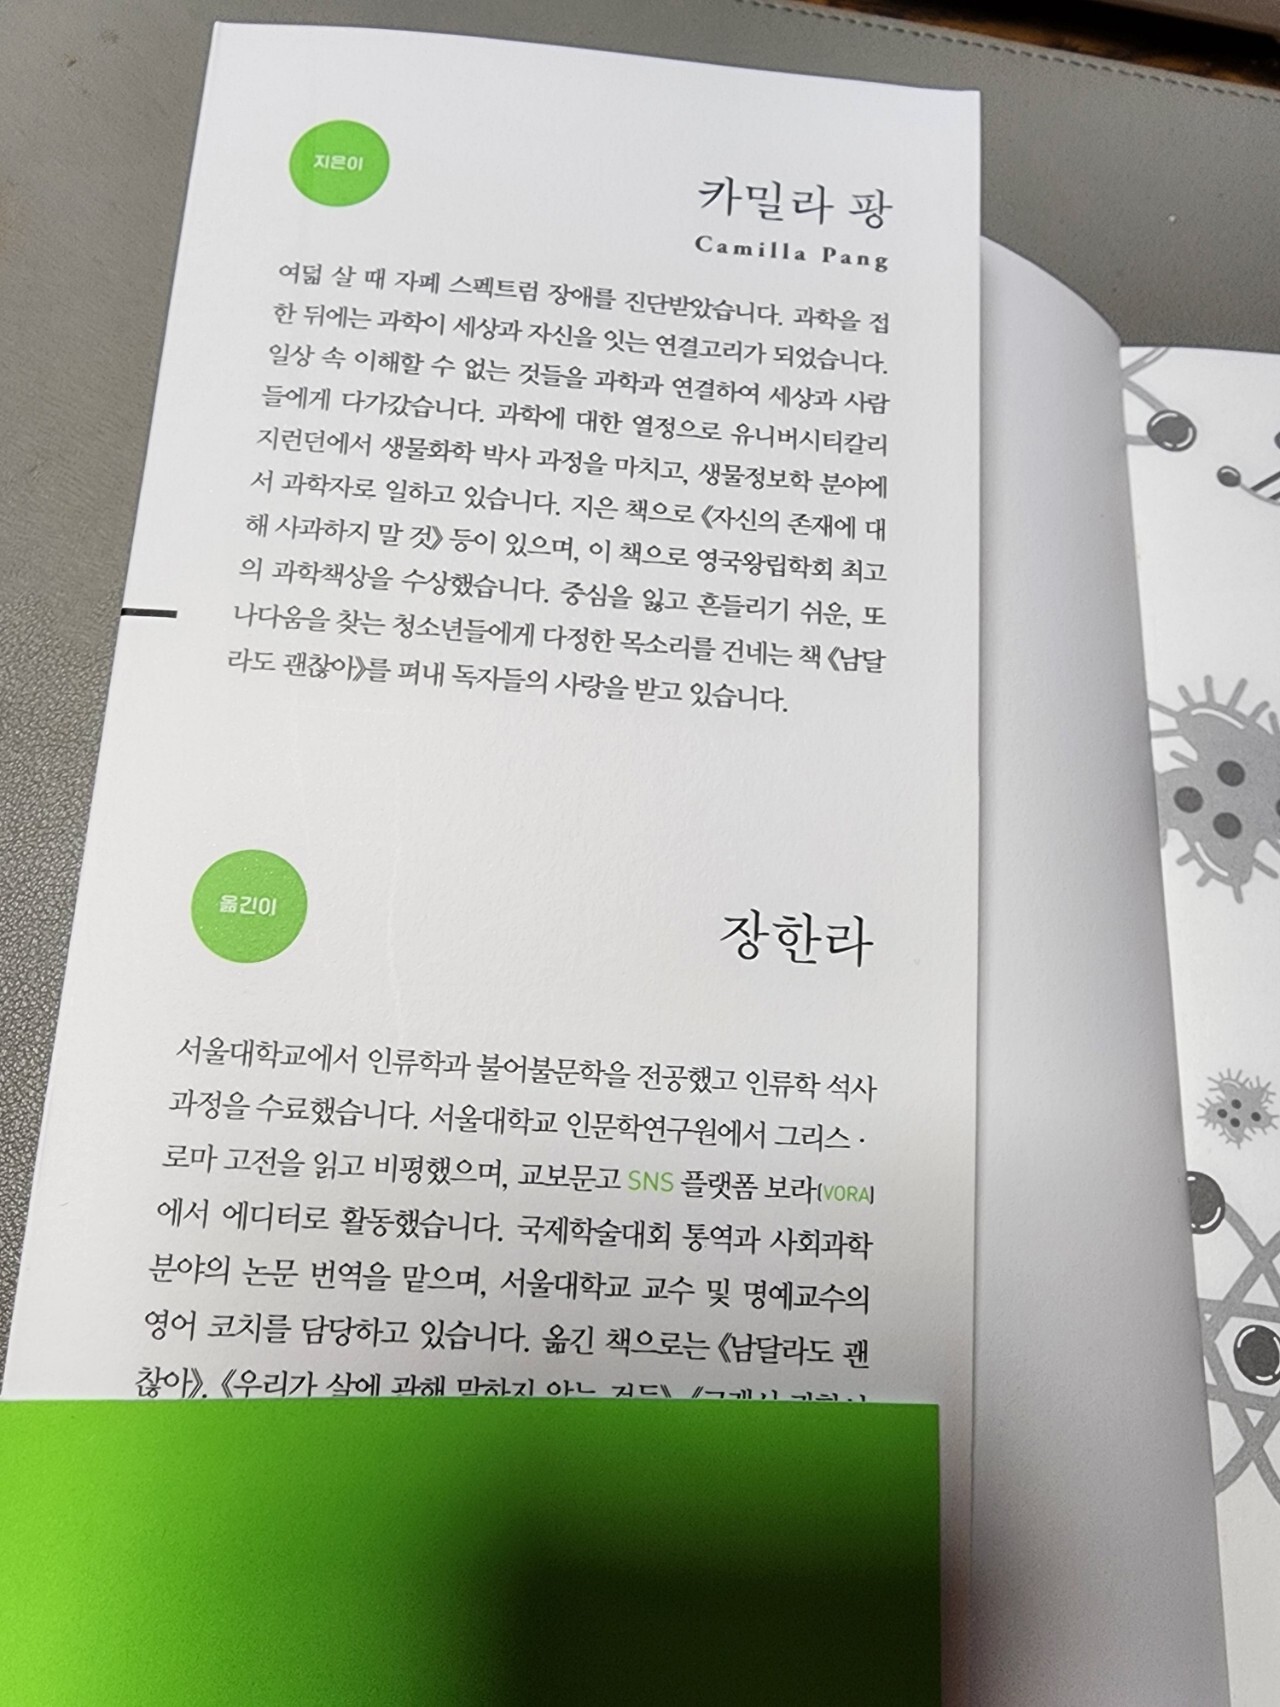 지은이
카밀라 팡
Camilla Pang
여덟 살 때 자폐 스펙트럼 장애를 진단받았습니다. 과학을 접
한 뒤에는 과학이 세상과 자신을 잇는 연결고리가 되었습니다.
일상 속 이해할 수 없는 것들을 과학과 연결하여 세상과 사람
들에게 다가갔습니다. 과학에 대한 열정으로 유니버시티칼리
지런던에서 생물화학 박사 과정을 마치고, 생물정보학 분야에
서 과학자로 일하고 있습니다. 지은 책으로 《자신의 존재에 대
해 사과하지 말 것》 등이 있으며, 이 책으로 영국왕립학회 최고
의 과학책상을 수상했습니다. 중심을 잃고 흔들리기 쉬운, 또
나다움을 찾는 청소년들에게 다정한 목소리를 건네는 책 《남달
라도 괜찮아》를 펴내 독자들의 사랑을 받고 있습니다.
옮긴이
장한라
서울대학교에서 인류학과 불어불문학을 전공했고 인류학 석사
과정을 수료했습니다. 서울대학교 인문학연구원에서 그리스 ·
로마 고전을 읽고 비평했으며, 교보문고 SNS 플랫폼 보라(VORA)
에서 에디터로 활동했습니다. 국제학술대회 통역과 사회과학
분야의 논문 번역을 맡으며, 서울대학교 교수 및 명예교수의
영어 코치를 담당하고 있습니다. 옮긴 책으로는 《남달라도 괜
찮아》, 《우리가 살에 관해 말하지 않는 것들》,